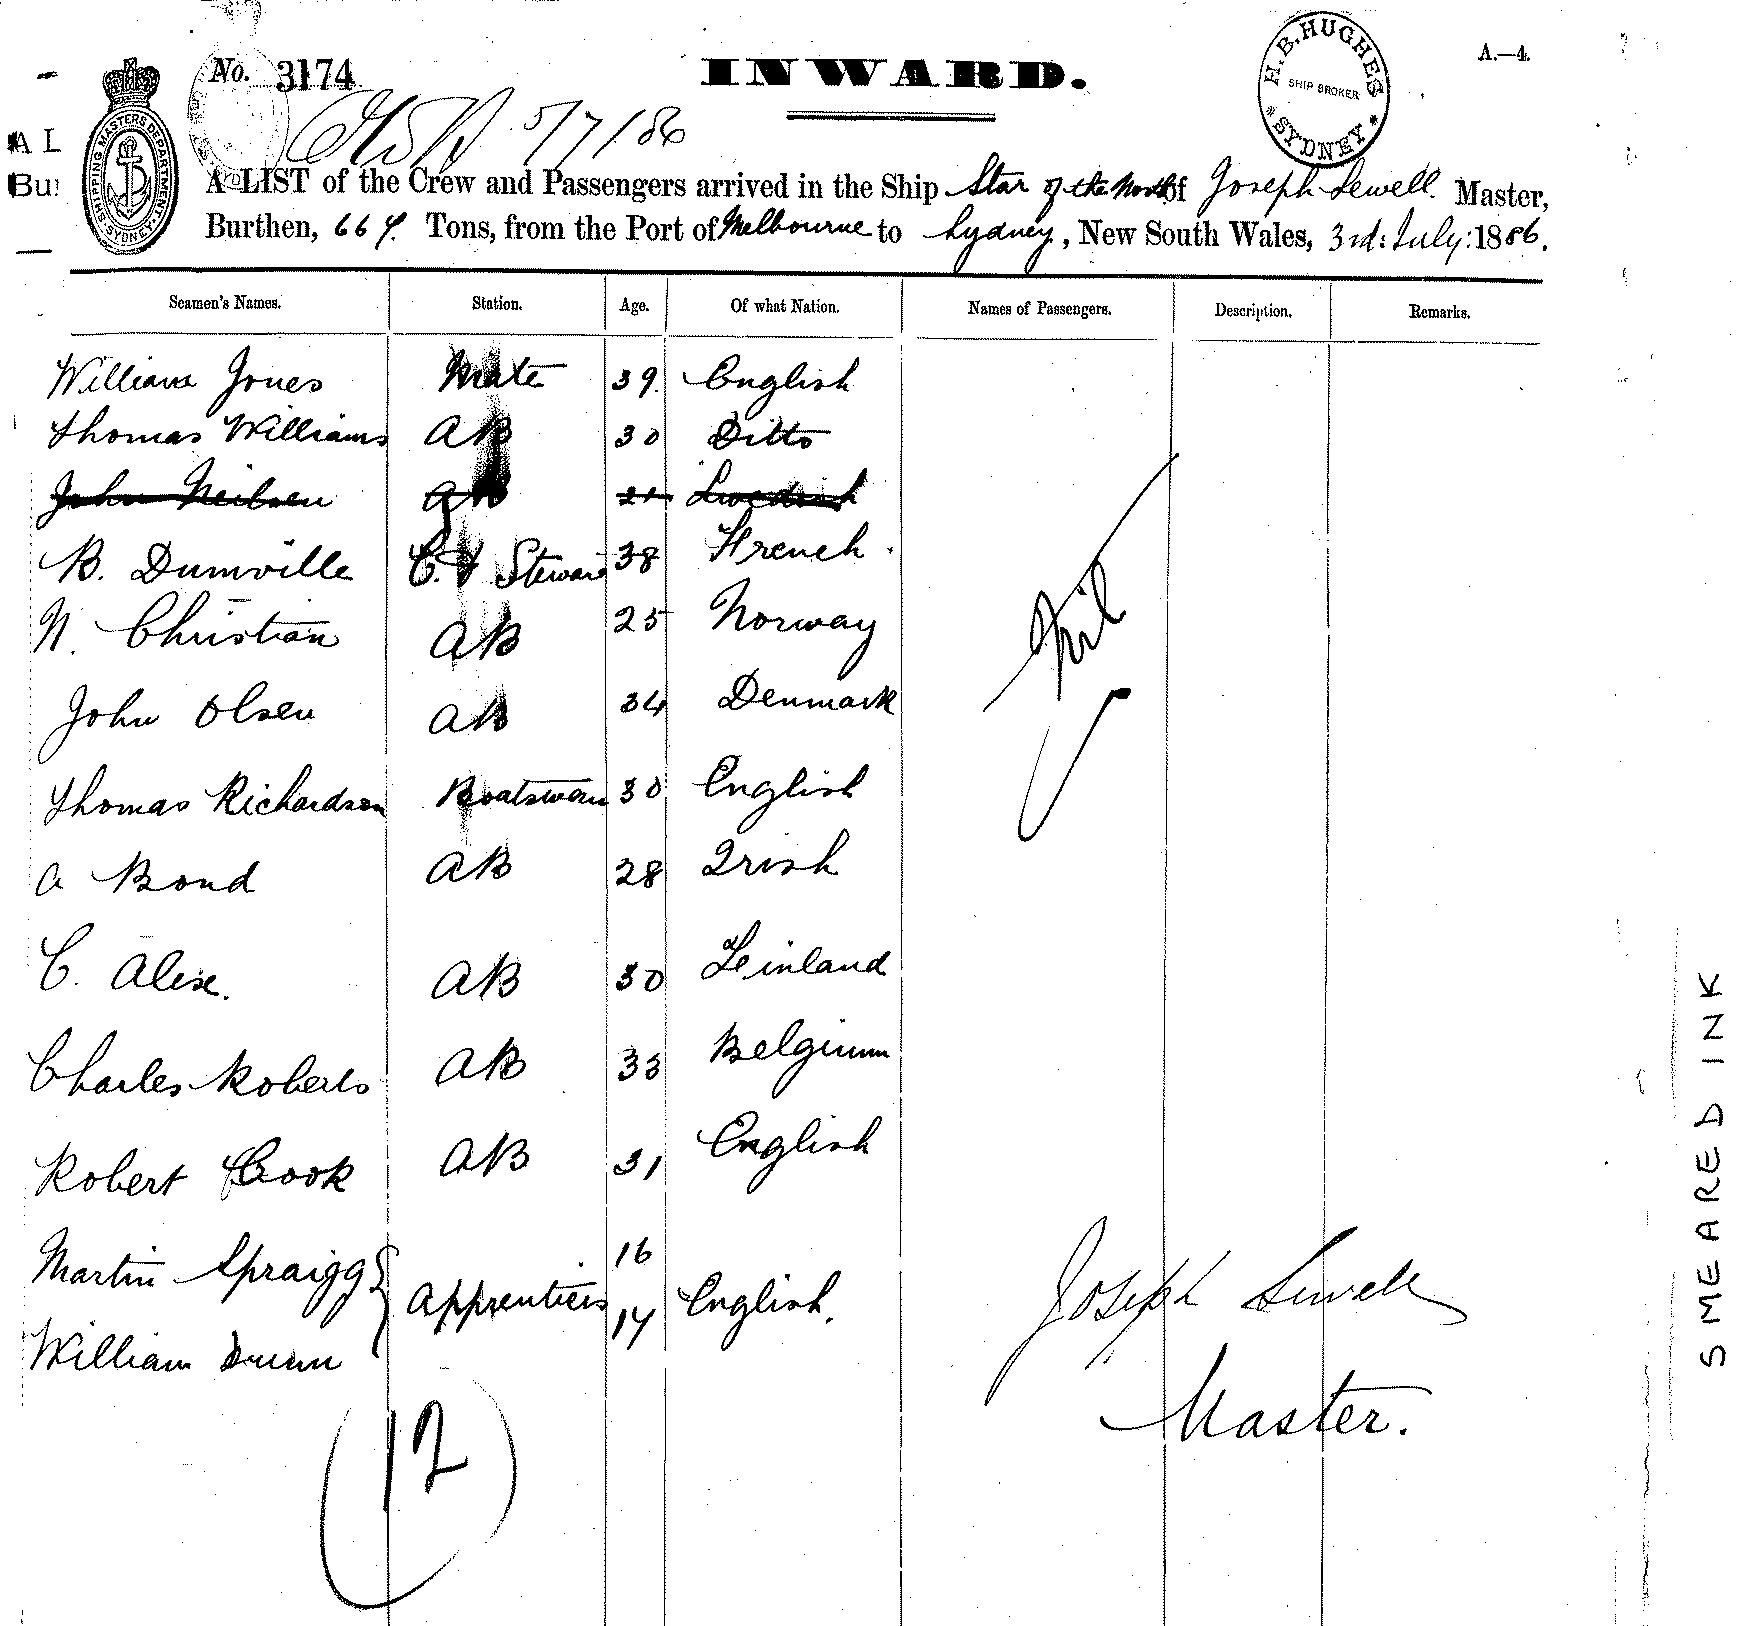 No. 3174
INWARD.
A.—4.
H. B. HUGHES
SHIP BROKER
SYDNEY
SHIPPING MASTERS DEPARTMENT
SYDNEY
5/7/86
A L
Bu
A LIST of the Crew and Passengers arrived in the Ship Star of the North of Joseph Sewell. Master,
Burthen, 667. Tons, from the Port of Melbourne to Sydney, New South Wales, 3rd: July: 1886.
Seamen's Names. Station. Age. Of what Nation. Names of Passengers. Description. Remarks.
William Jones Mate 39. English
Thomas Williams AB 30 Ditto
John Neilsen AB 21 Swedish
B. Dumville C. & Steward 38 French
N. Christian AB 25 Norway
John Olsen AB 34 Denmark
Nil
Thomas Richardson Boatswain 30 English
A Bond AB 28 Irish
C. Alexe. AB 30 Feinland
Charles Roberts AB 33 Belgium
Robert Cook AB 31 English
Martin Spraigg 16
Apprentices English.
William Dunn 17
Joseph Sewell
Master.
(12)
SMEARED INK